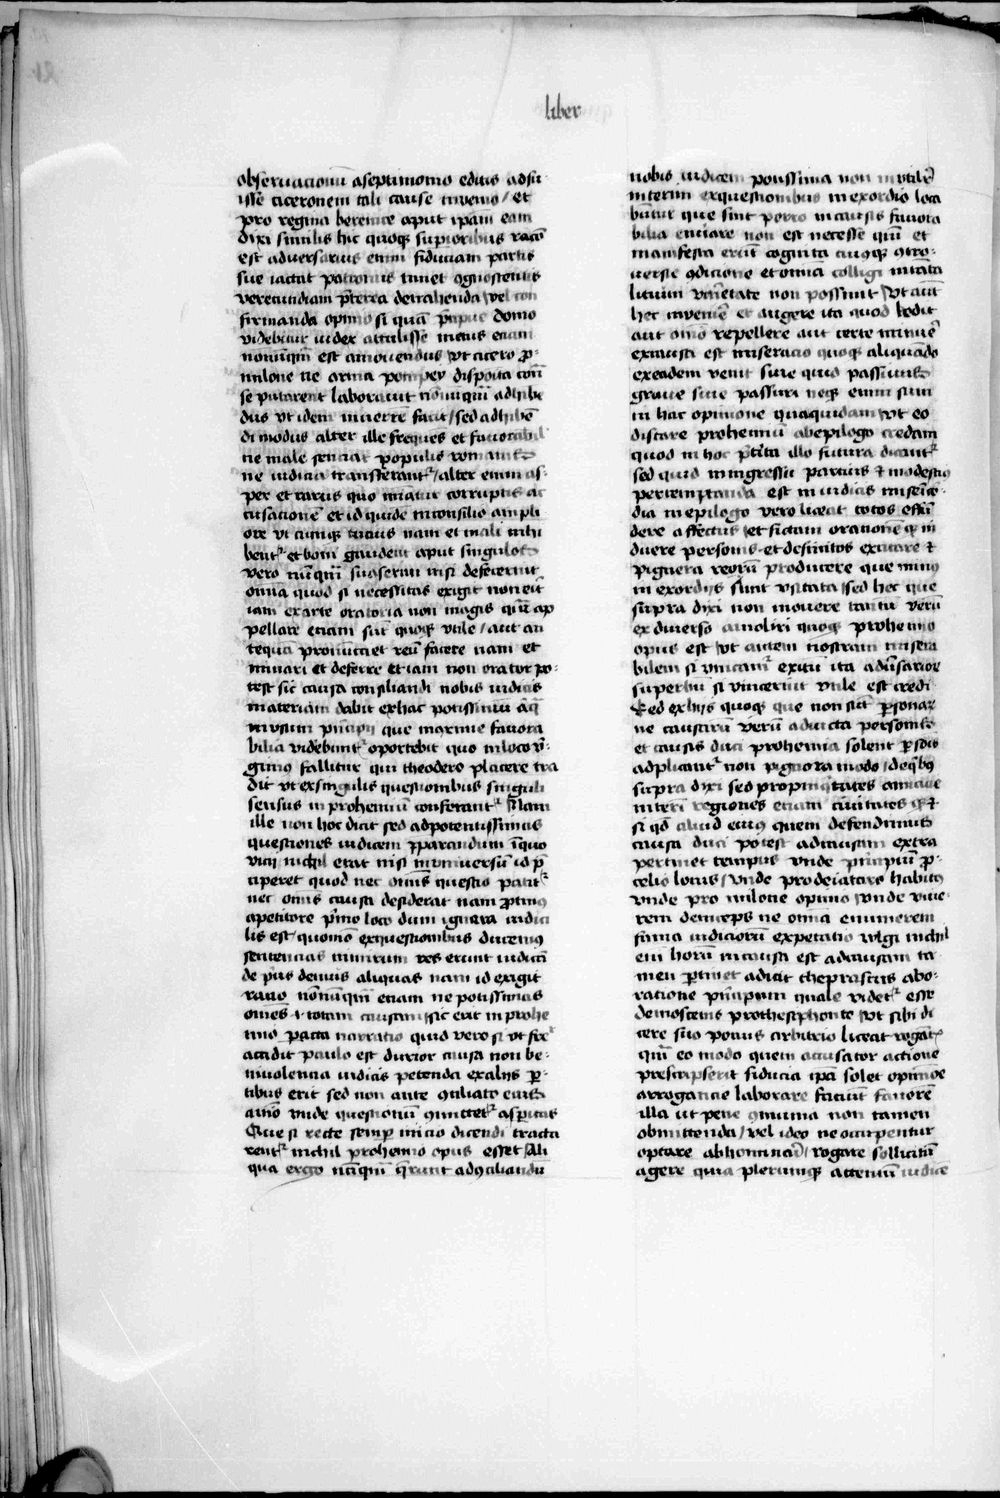 liber
obseruacionū aseptimomio editis adfu
isse ciceronem tali cause inuenio / et
pro regina berenice aput ipam eam
dixi similis hic quoqꝫ supioribus racō
est aduersarius enim fiduciam partis
sue iactat patronus timet ꝯgnoscentis
verecundiam p̄terea detrahenda / vel con
firmanda opinio si quā p̄apue domo
videbitur iudex attulisse metus etiam
nonūqm̄ est amouendus / vt cicero p̱
milone ne arma pompey disposita con̄
se putarent laborauit nōnūqm̄ adhibē
dus vt idem in verrē facit / sed adhibē
di modus alter ille frequēs et fauorabil
ne male senciat populus romanus
ne iudicia transferantᷣ / alter enim as
per et rarus quo minatur corruptis ac
cusationē et id quidē in consilio ampli
ore vt cumqꝫ tucius nam et mali inhi
bentᷣ et boni gaudent aput singulos
vero nūqm̄ suaserim nisi defecerint
omīa quod si necessitas exigit non eīt
iam ex arte oratoria non magis qm̄ ap
pellare etiam sūt quoqꝫ vtile / aut an
tequā pronunciet reū facere nam et
minari et deferre etiam non orator po
test sic causa consiliandi nobis iudicis
materiam dabit ex hac potissimū aliq̄
in vsum principii que maxime fauora
bilia videbuntᷣ oportebit quo in loco v̄
ginius fallitur qui theodero placere tra
dit vt ex singulis questionibus singuli
sensus in prohemiū conferantᷣ Nam
ille non hoc dicit sed ad potentissimas
questiones iudicem p̄parandum in quo
vicii nichil erat nisi in vniuersū id p̄
ciperet quod nec omīs questio patitᷣ
nec omīs causa desiderat nam p̱tinus
apetitore p̄mo loco dum ignota iudici
lis est quomō ex questionibus ducemus
sentencias nimirum res erunt iudicā
de p̄us demus aliquas nam id exigit
ratio nōnūqm̄ etiam ne potissimas
omēs · i · totam causam / sic erit in prohe
mio pacta narratio quid vero si vt sepe
accidit paulo est durior causa non be
niuolencia iudicis petenda ex aliis p̱
tibus erit sed non ante ꝯciliato eius
aīo nude questionū ꝯmittetᷣ asperitas
Que si recte semp̱ inicio dicendi tracta
rentᷣ nichil prohemio opus esset Ali
qua ergo nūqm̄ q̄runt ad ꝯciliandū
nobis iudicem potissima non inutilē
interim ex questionibus in exordio loca
buntur que sint porro in causis fauora
bilia enuiare non est necesse quī et
manifesta erūt cognita cuiusqꝫ ꝯtro
uersie ꝯdicione et omnia colligi in tāta
lituum varietate non possunt / Vt autē
hec inuenire et augere ita quod ledit
aut omō repellere aut certe minuē
ex causa est miseracio quoqꝫ aliquādo
ex eadem venit siue quid passi sumus
graue siue passuri neqꝫ enim sum
in hac opinione qua quidam / vt eo
distare prohemiū ab epilogo credam
quod in hoc p̄terita illo futura dicantᷣ
sed quid in ingressu parcius et modestius
pertemptanda est in iudicis miserico
dia in epilogo vero liceat totos effū
dere affectus et fictam orationē in
duere personis et defūctos excitare et
pignera reorū producere que minus
in exordiis sunt vsitata sed hec que
supra dixi non mouere tantū verū
ex diuerso amoliri quoqꝫ prohemio
opus est / vt autem nostram misera
bilem si vincamᷣ exitū ita aduersarior
superbū si vincerint vtile est credi
Sed ex hiis quoqꝫ que non sūt p̱sonaꝝ
ne causarū verū adiuncta personis
et causis duci prohemia solent p̱sōis
adplicantᷣ non pignora modo / de qbꝫ
supra dixi sed propinqtates amicicie
interī regiones etiam ciuitates qꝫ et
si qd̄ aliud eius quem defendimus
causa duci potest ad causam extra
pertinet tempus vnde principiū p̱
celio locus / vnde pro deiatoro habitꝰ
vnde pro milone opinio / vnde viue
rem deinceps ne omīa enumerem
fama iudiciorū expetatio vulgi nichil
eni horū in causa est ad causam ta
men p̱tinet adicit thephrastus abo
ratione principium quale videtᷣ esse
demostenis prothesiphonte / vt sibi di
cere suo potius arbitrio liceat rogātᷣ
qm̄ eo modo quem accusator actione
prescripserit fiducia ip̄a solet opinioē
arrogancie laborare faciūt fauorē
illa ut pene ꝯmunia non tamen
obmittenda / vel ideo ne occupentur
optare abhominarī / rogare sollicitū
agere quia plerumqꝫ attentū iudicē